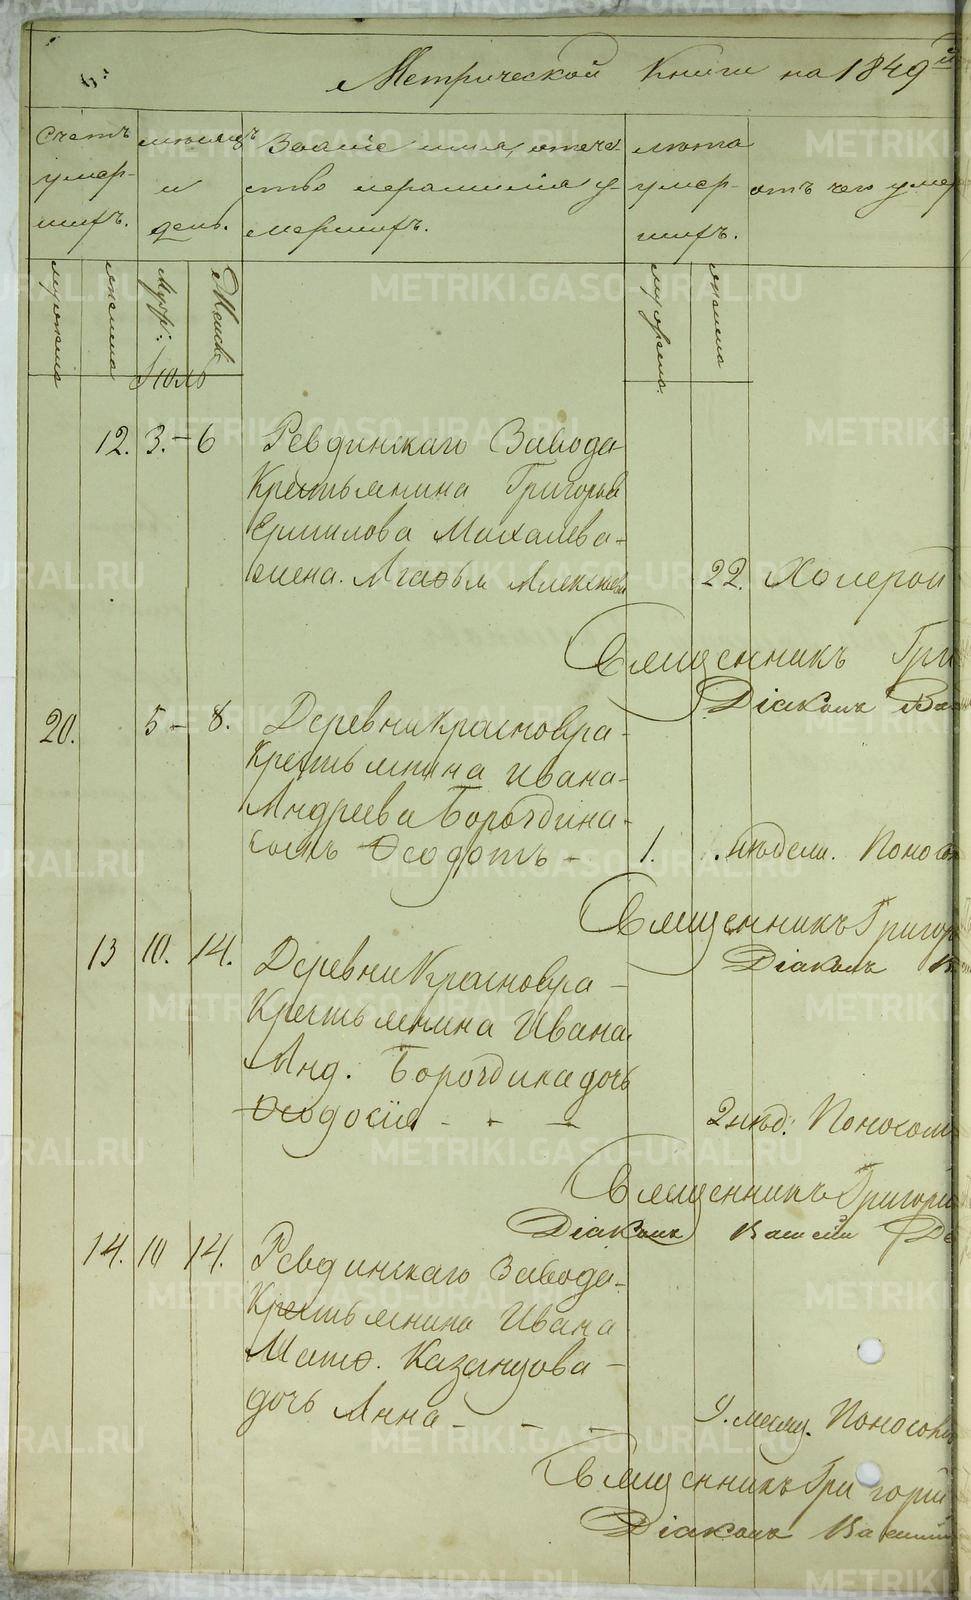 Метрической Книги на 1849 й
Счетъ умер- шихъ.
месяцъ и день.
Званіе имя, отече ство и фамилія у мершихъ.
лѣта умер- шихъ.
отъ чего умер
мужеска
женска
Мужеска
женска
Іюль
12. 3. - 6 Ревдинскаго Завода
Крестьянина Григорья
Ермилова Михалева-
жена Агафья Алексѣева 22. Холерой
Священникъ Гри
Діаконъ Ва
20. 5 - 8. Деревни Краснояра-
Крестьянина Ивана-
Андреева Бороздина-
сынъ Ѳеодотъ - 1. недели. Поносо
Священникъ Григор
Діаконъ В
13 10. 14. Деревни Краснояра -
Крестьянина Ивана
Анд. Бороздина дочь
Ѳеодосія - - - 2 нед: Поносом
Священникъ Григорій
Діаконъ Василій
14. 10 14. Ревдинскаго Завода-
Крестьянина Ивана
Матѳ. Казанцова -
дочь Анна - - - 9. месяц. Поносомъ
Священникъ Григорій
Діаконъ Василій
METRIKI.GASO-URAL.RU